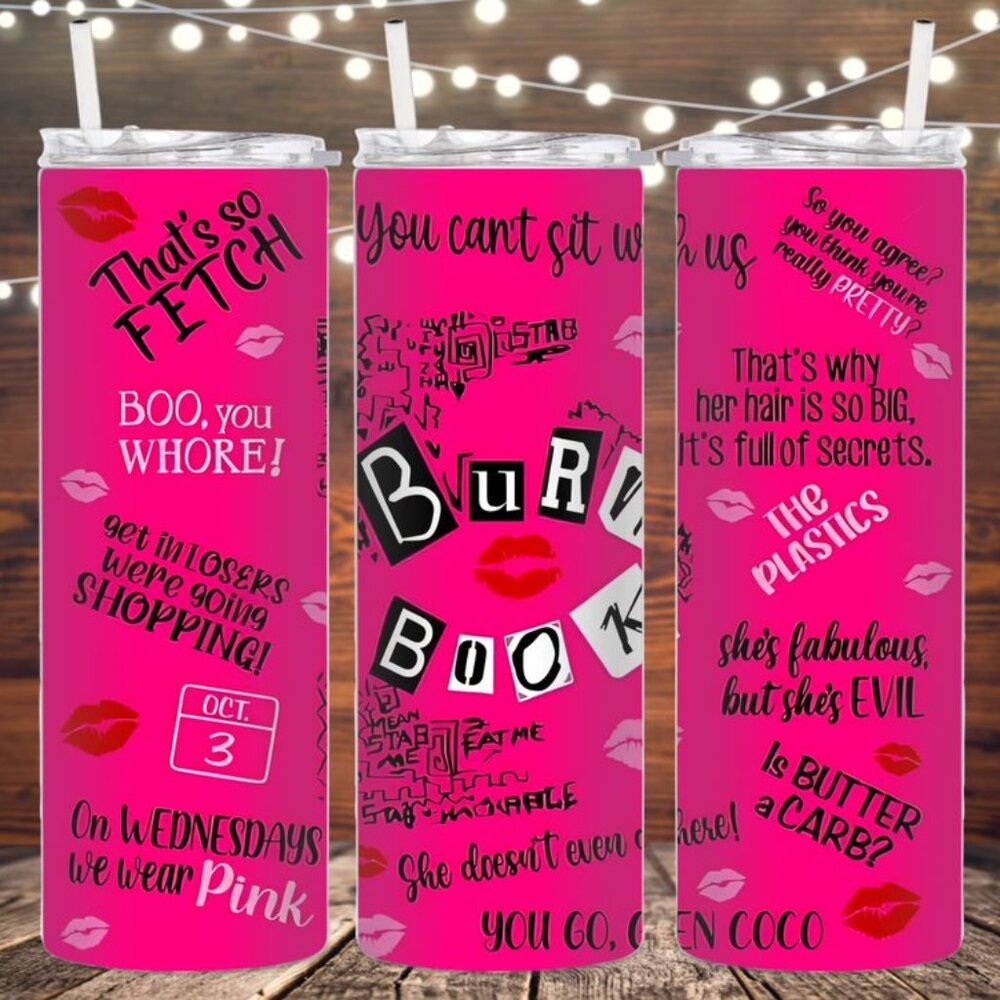 That's so
FETCH
BOO, you
WHORE!
get in LOSERS
We're going
SHOPPING!
OCT.
3
On WEDNESDAYS
we wear Pink
You can't sit w
STAB
BURN
BOOK
MEAN
STAB
ME
EAT ME
She doesn't even
YOU GO, G
h us
So you agree?
you think you're
really PRETTY?
That's why
her hair is so BIG,
it's full of secrets.
THE
PLASTICS
she's fabulous,
but she's EVIL
Is BUTTER
a CARB?
here!
EN COCO